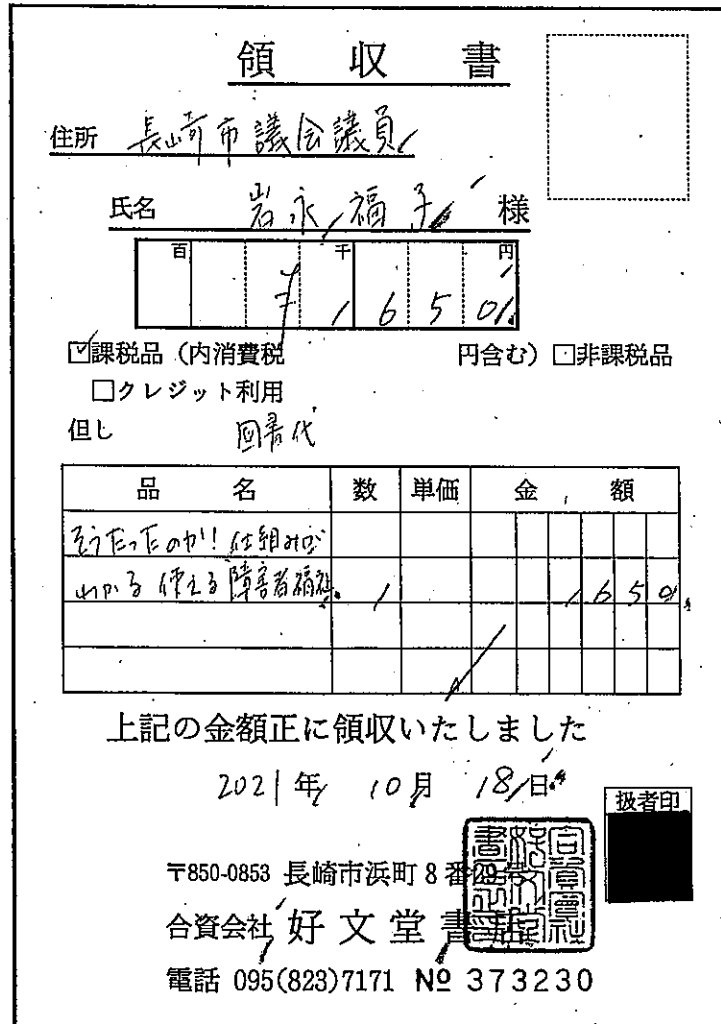 領収書
住所 長崎市議会議員
氏名 岩永福子 様
百 千 円
¥1650
☑課税品（内消費税 円含む）□非課税品
□クレジット利用
但し 図書代
品名 数 単価 金額
そうだったのか!仕組みが
わかる使える障害者福祉 1 1650
上記の金額正に領収いたしました
2021年 10月 18日
扱者印
〒850-0853 長崎市浜町8番29号
合資会社 好文堂書店
電話 095(823)7171 № 373230